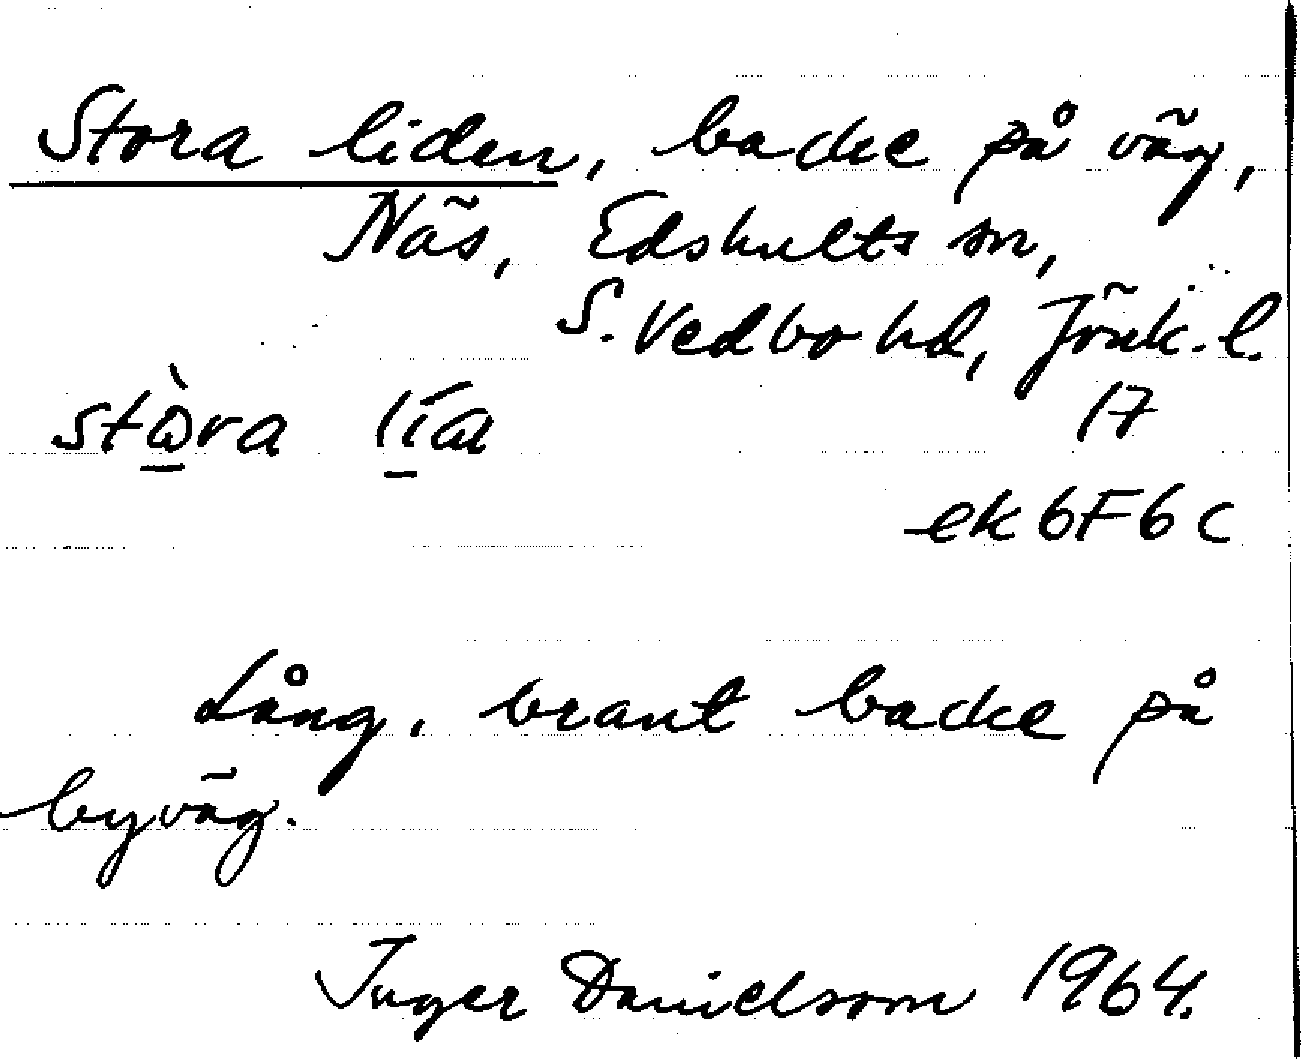 Stora liden, backe på väg,
Näs, Edshults sn,
S. Vedbo hd, Jönk. l.
stὼra lía
17
ek 6F6c
Lång, brant backe på
byväg.
Inger Danielsson 1964.